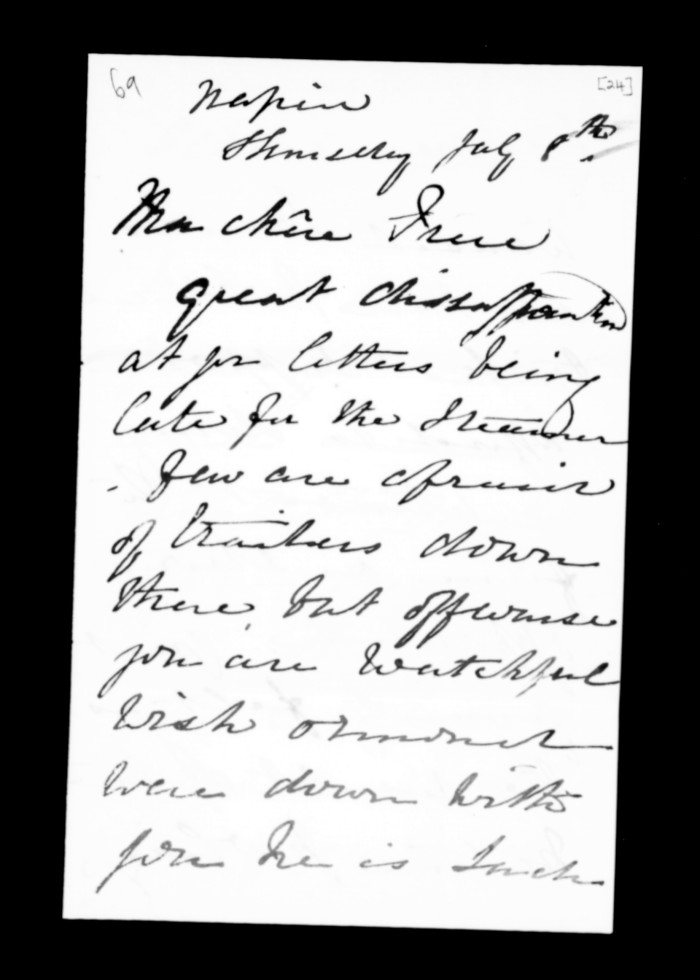 69 [24]
Napier
Thursday July 8th.
Ma chêre Frere
great dissappointm
at yr letters being
late for the Steamer
. few are afraid
of traitors down
there, but offcourse
you are watchful
wish Ormond
were down with
you he is such